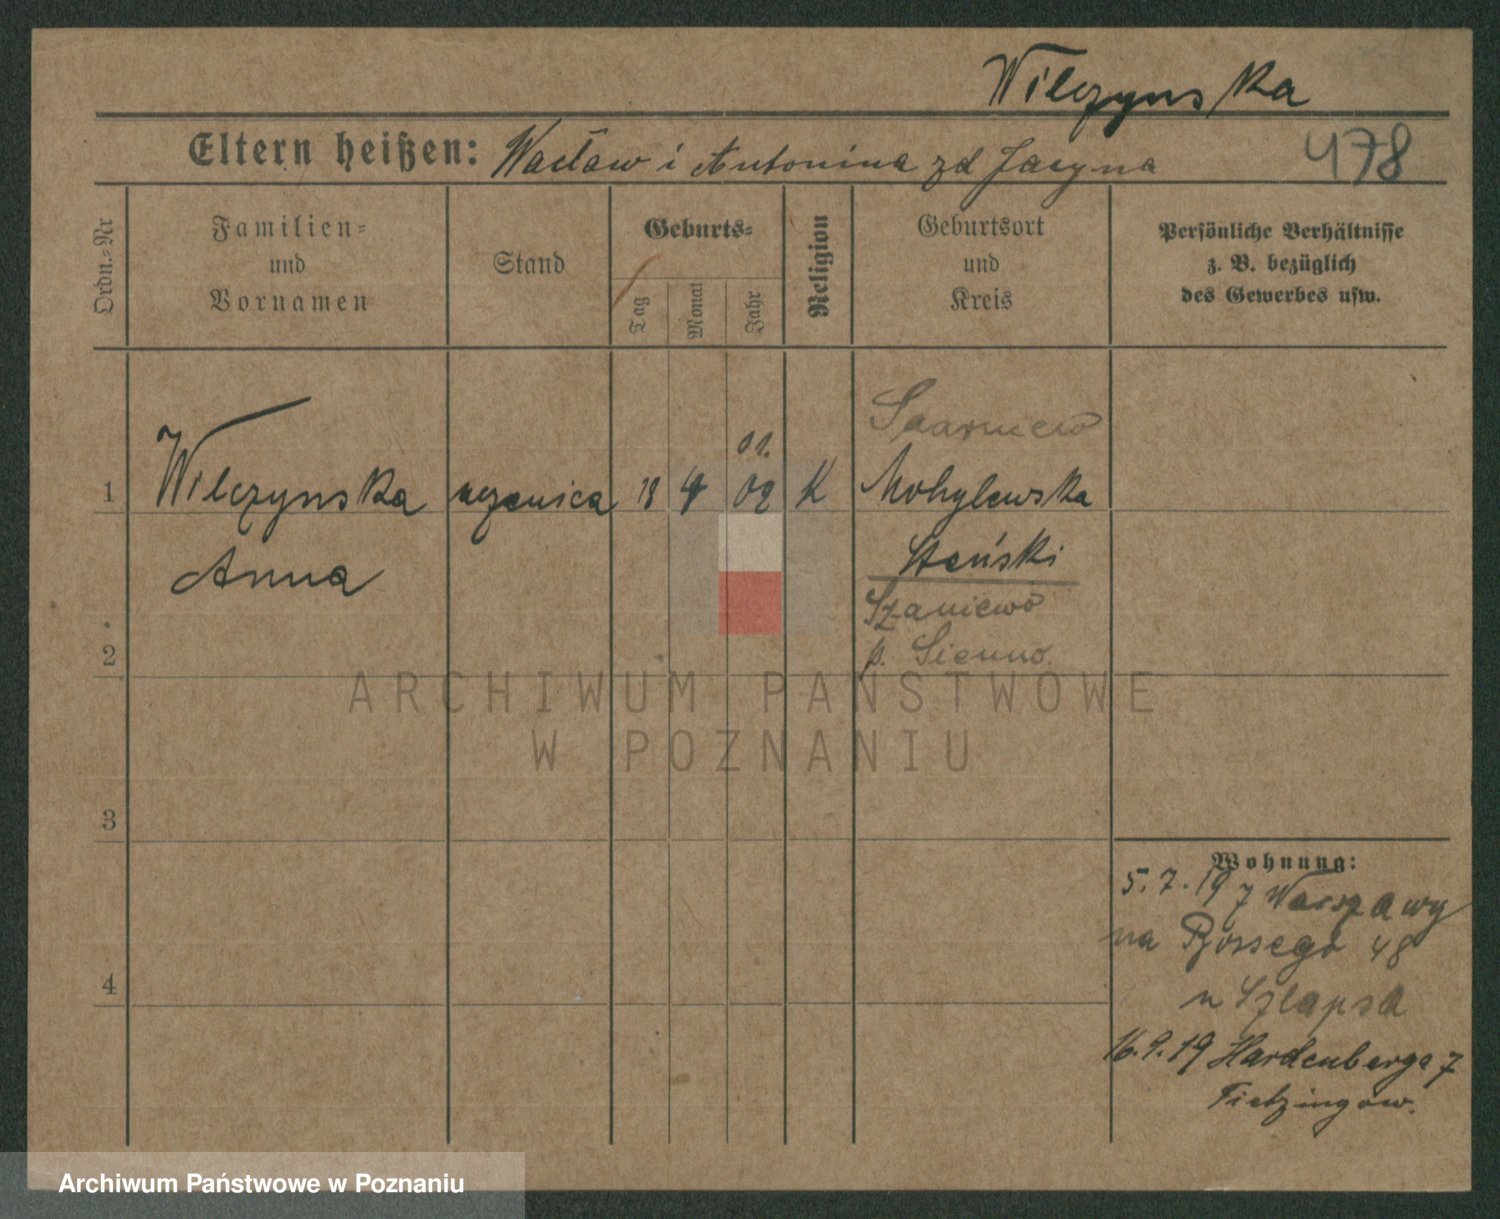 Wilczynska
Eltern heißen: Wacław i Antonina zd Jacyna
478
Ordn.-Nr
Familien-
und
Vornamen
Stand
Geburts-
Tag
Monat
Jahr
Religion
Geburtsort
und
Kreis
Persönliche Verhältnisse
z. B. bezüglich
des Gewerbes usw.
01.
1 Wilczynska uczenica 18 4 02 K Mohylewska
Anna
Szaniewo
2
p. Sienno
3
4
Wohnung:
5.7.19 z Warszawy
na 48
16.9.19 Hardenberga 7
ARCHIWUM PAŃSTWOWE
W POZNANIU
Archiwum Państwowe w Poznaniu